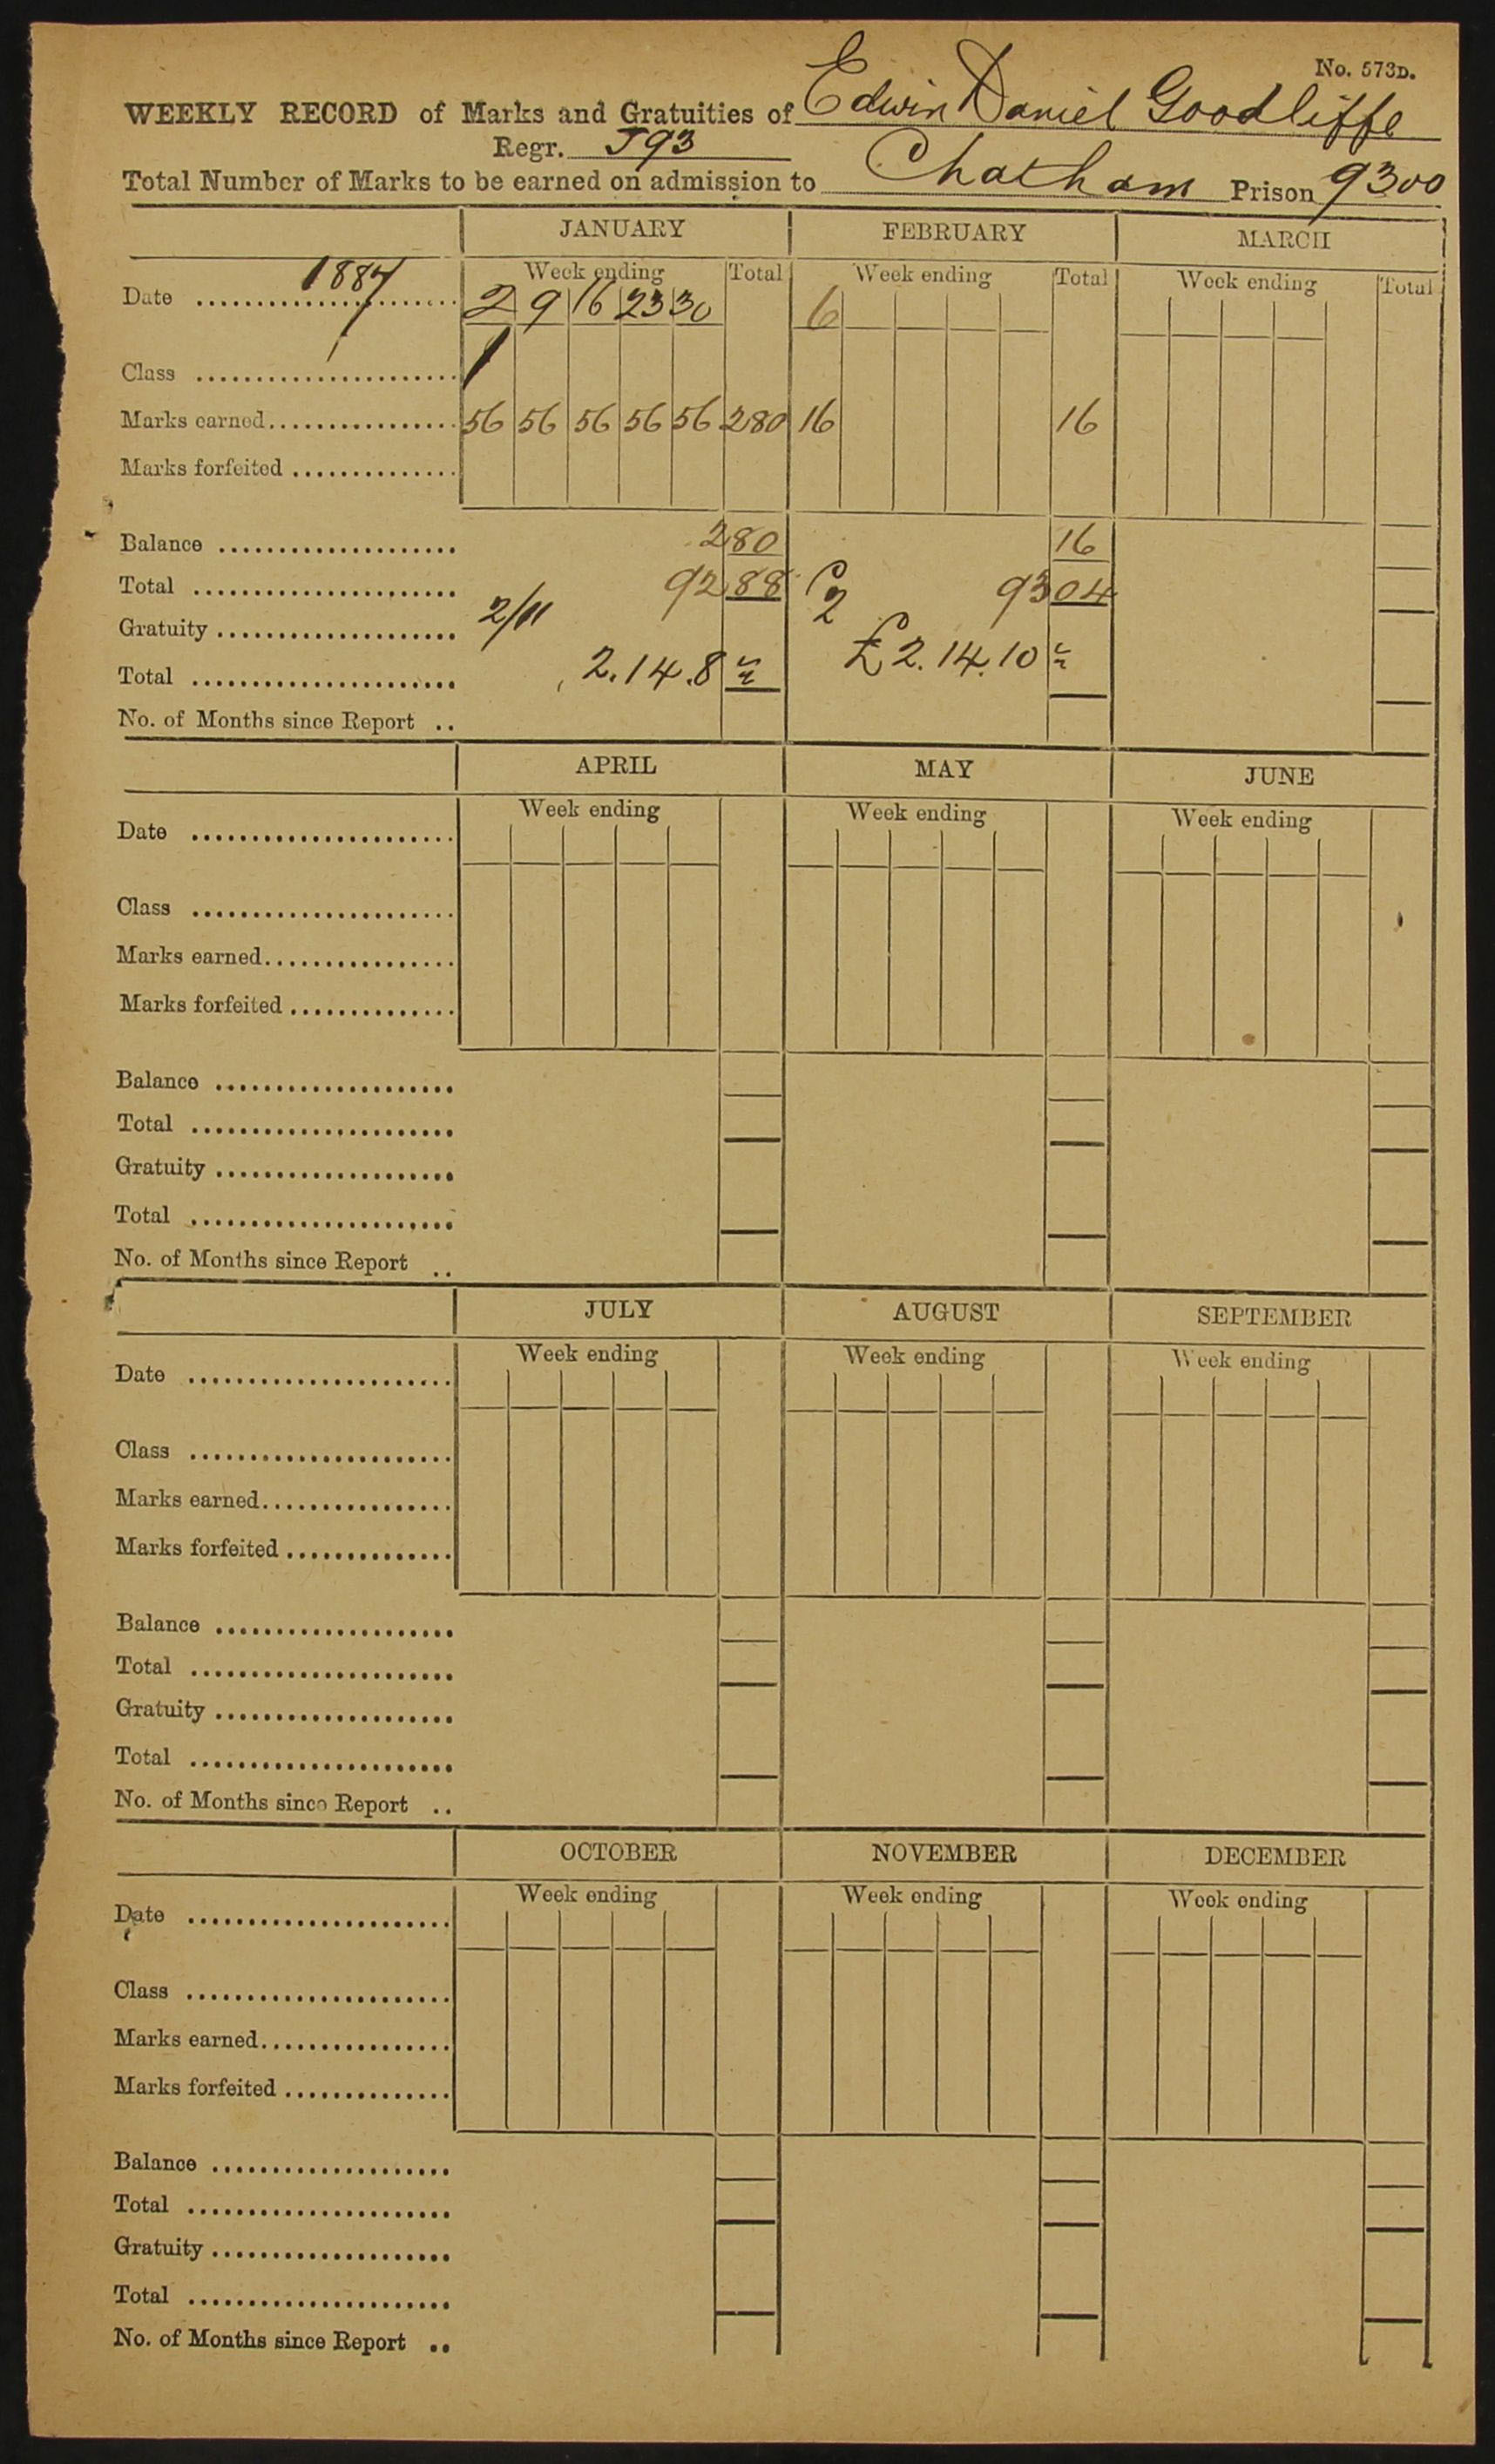 No. 573D.
WEEKLY RECORD of Marks and Gratuities of Edwin Daniel Goodliffe
Regr. J93
Total Number of Marks to be earned on admission to Chatham Prison 9300
JANUARY FEBRUARY MARCH
Week ending Total Week ending Total Week ending Total
Date 1887 2 9 16 23 30 6
Class 1
Marks earned 56 56 56 56 56 280 16 16
Marks forfeited
Balance 280 16
Total 9288 9304
Gratuity 2/11 2
Total 2.14.8 £2.14.10
No. of Months since Report
APRIL MAY JUNE
Week ending Week ending Week ending
Date
Class
Marks earned
Marks forfeited
Balance
Total
Gratuity
Total
No. of Months since Report
JULY AUGUST SEPTEMBER
Week ending Week ending Week ending
Date
Class
Marks earned
Marks forfeited
Balance
Total
Gratuity
Total
No. of Months since Report
OCTOBER NOVEMBER DECEMBER
Week ending Week ending Week ending
Date
Class
Marks earned
Marks forfeited
Balance
Total
Gratuity
Total
No. of Months since Report